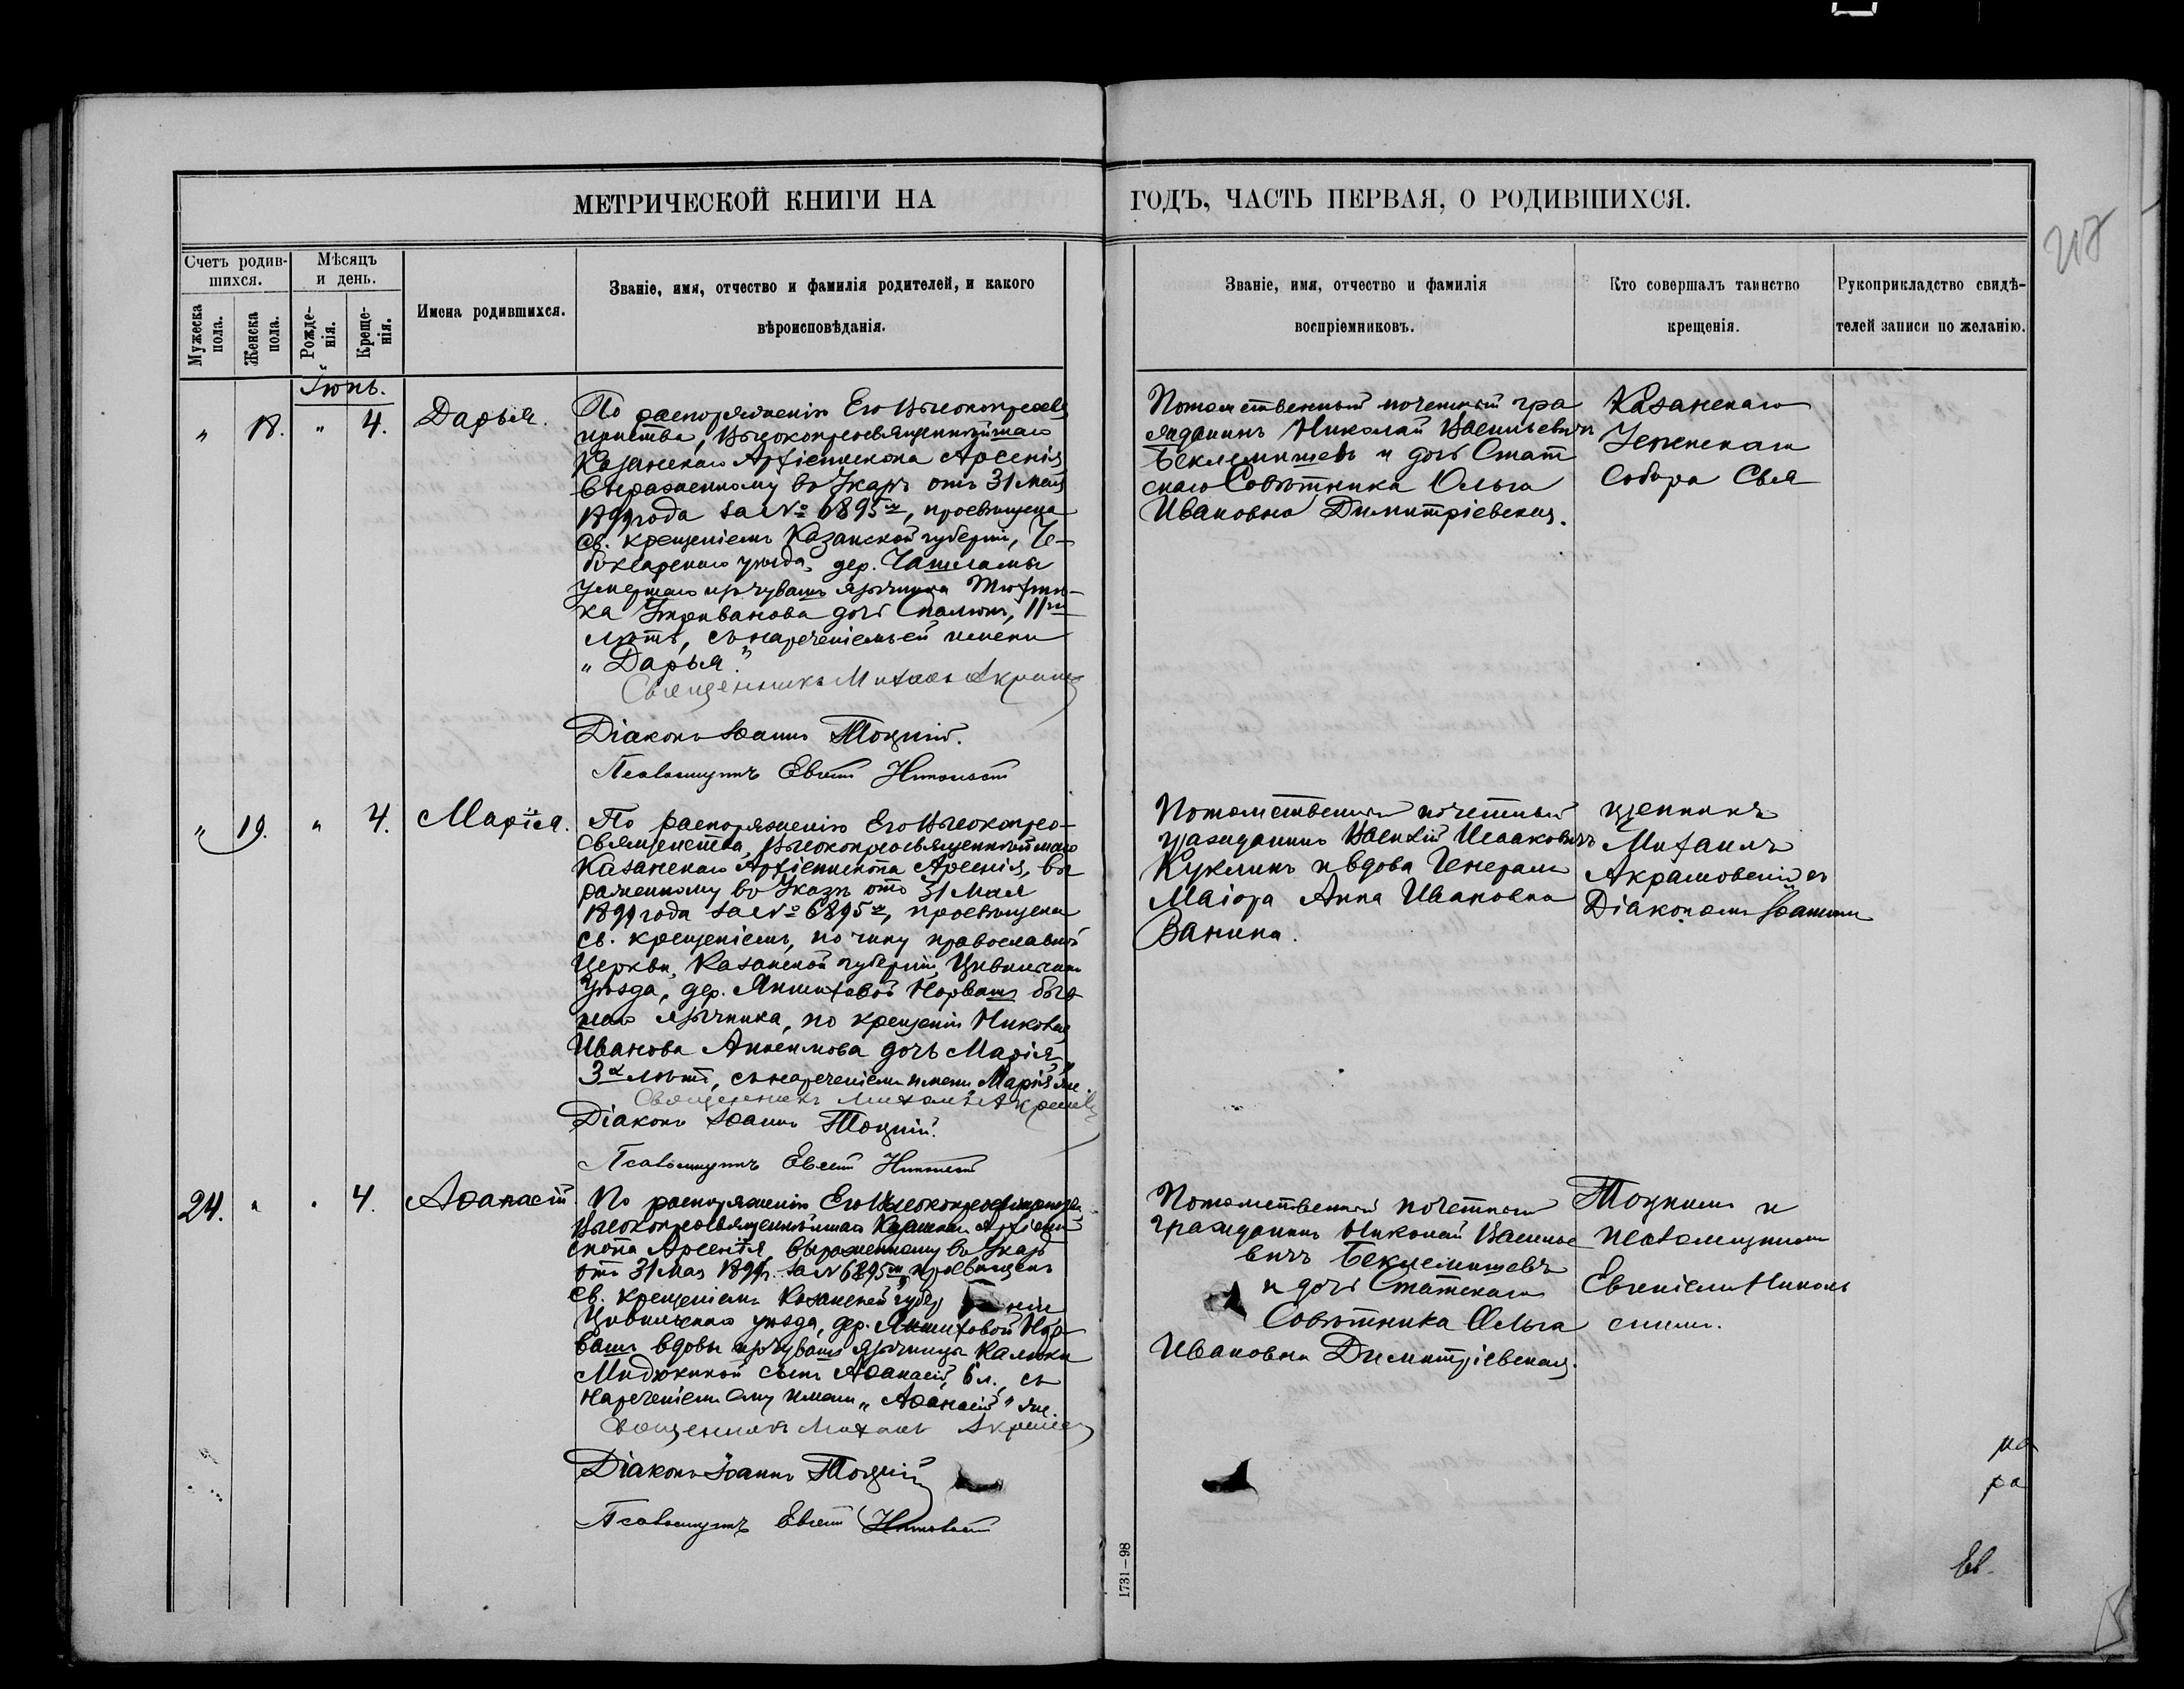 МЕТРИЧЕСКОЙ КНИГИ НА
ГОДЪ, ЧАСТЬ ПЕРВАЯ, О РОДИВШИХСЯ.
Счетъ родив-
шихся.
Мужеска
пола.
Женска
пола.
Мѣсяцъ
и день.
Рожде-
нія.
Креще-
нія.
Имена родившихся.
Званіе, имя, отчество и фамилія родителей, и какого
вѣроисповѣданія.
Званіе, имя, отчество и фамилія
воспріемниковъ.
Кто совершалъ таинство
крещенія.
Рукоприкладство свидѣ-
телей записи по желанію.
Іюнь.
„ 18. „ 4. Дарья.
По распоряженію Его Высокопреосвя
щенства, Высокопреосвященнѣйшаго
Казанскаго Архіепископа Арсенія
выраженному въ Указѣ отъ 31 Мая
1899 года за № 6895м, просвѣщена
св. крещеніемъ Казанской губерніи, Че-
боксарскаго уѣзда, дер. Чашламы
умершаго изъ чувашъ язычника
дочь 11ти
лѣтъ, съ нареченіемъ ей имени
„Дарья."
Священникъ Михаилъ
Діаконъ Іоаннъ Тоцкій.
Псаломщикъ Евгеній Никольскій
Потомственный почетный гра
жданинъ Николай Васильевичъ
Беклемишевъ и дочь Стат
скаго Совѣтника Ольга
Ивановна Димитріевская.
Казанскаго
Успенскаго
Собора Свя
„ 19. „ 4. Марія.
По распоряженію Его Высокопрео-
священства, Высокопреосвященнѣйшаго
Казанскаго Архіепископа Арсенія, вы
раженному въ Указѣ отъ 31 Мая
1899 года за № 6895м, просвѣщена
св. крещеніемъ, по чину православной
Церкви, Казанской губерніи, Цивильскаго
Уѣзда, дер. Яншиховой Норвашъ быв
шаго язычника, по крещеніи Николая
Иванова Анисимова дочь Марія
3х лѣтъ, съ нареченіемъ имени Марія же.
Священникъ Михаилъ
Діаконъ Іоаннъ Тоцкій.
Псаломщикъ Евгеній Никольскій
Потомственный почетный
гражданинъ Василій Исааковичъ
Куклинъ и вдова Генералъ
Маіора Анна Ивановна
Ванина.
щенникъ
Михаилъ
Акрамовскій съ
Діакономъ Іоанномъ
24. „ „ 4. Аѳанасій
По распоряженію Его Высокопреосвященства
Высокопреосвященнѣйшаго Казанскаго Архіепи
скопа Арсенія, выраженному въ Указѣ
отъ 31 Мая 1899 г. за № 6895м, просвѣщенъ
св. крещеніемъ Казанской губер ніи
Цивильскаго уѣзда, дер. Яншиховой Нор
вашъ вдовы изъ чувашъ язычницы
сынъ Аѳанасій, 6 л., съ
нареченіемъ ему имени „Аѳанасій" же.
Священникъ Михаилъ
Діаконъ Іоаннъ Тоцкій
Псаломщикъ Евгеній Никольскій
Потомственный почетный
гражданинъ Николай Василье
вичъ Беклемишевъ
и дочь Статскаго
Совѣтника Ольга
Ивановна Димитріевская.
Тоцкимъ и
псаломщикомъ
Евгеніемъ Николь
скимъ.
1731—98